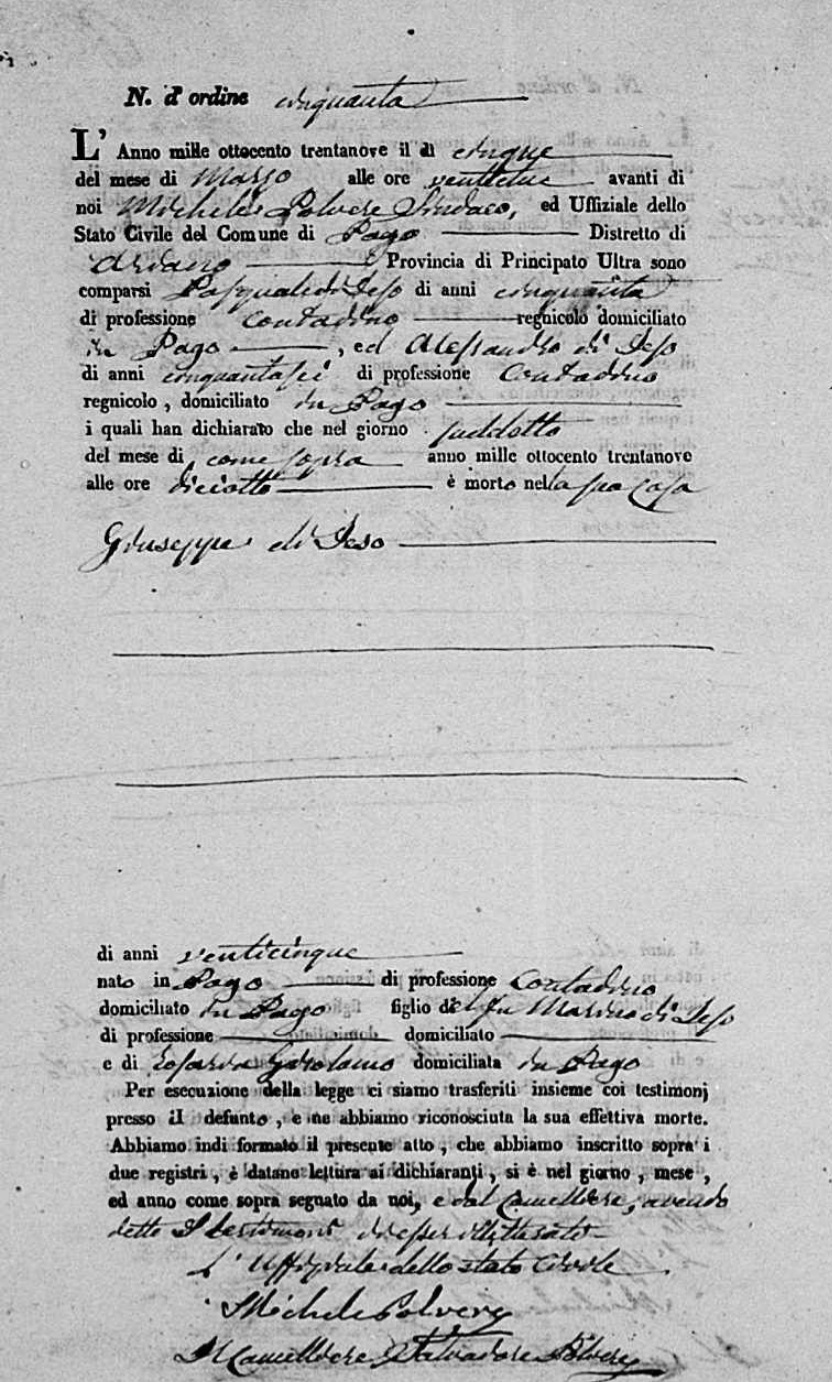 N. d'ordine cinquanta
L' Anno mille ottocento trentanove il dì cinque
del mese di Marzo alle ore ventidue avanti di
noi Michele Polvere Sindaco, ed Uffiziale dello
Stato Civile del Comune di Pago Distretto di
Ariano Provincia di Principato Ultra sono
comparsi Pasquale di Ieso di anni cinquanta
di professione contadino regnicolo domiciliato
in Pago, ed Alessandro di Ieso
di anni cinquantasei di professione Contadino
regnicolo, domiciliato in Pago
i quali han dichiarato che nel giorno suddetto
del mese di come sopra anno mille ottocento trentanove
alle ore diciotto è morto nella sua casa
Giuseppe di Ieso
di anni venticinque
nato in Pago di professione Contadino
domiciliato in Pago figlio del fu Marino di Ieso
di professione domiciliato
e di Girolamo domiciliata in Pago
Per esecuzione della legge ci siamo trasferiti insieme coi testimonj
presso il defunto, e ne abbiamo riconosciuta la sua effettiva morte.
Abbiamo indi formato il presente atto, che abbiamo inscritto sopra i
due registri, è datane lettura ai dichiaranti, si è nel giorno, mese,
ed anno come sopra segnato da noi, e dal Cancelliere, avendo
detto I testimoni di esser illetterati
L'Uffiziale dello stato Civile
Michele Polvere
Il Cancelliere Salvadore Polvere